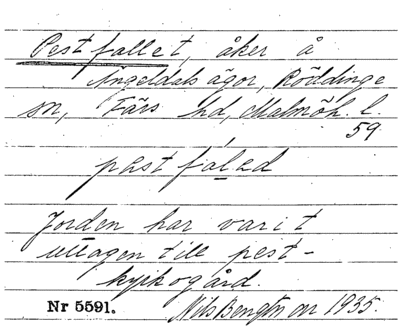 Pestfallet, åker å
Ingeldals ägor, Röddinge
sn, Färs hd, Malmöh. l.
59
pest fáled
Jorden har varit
uttagen till pest-
kyrkogård.
Nr 5591. Nils Bengtsson 1935.